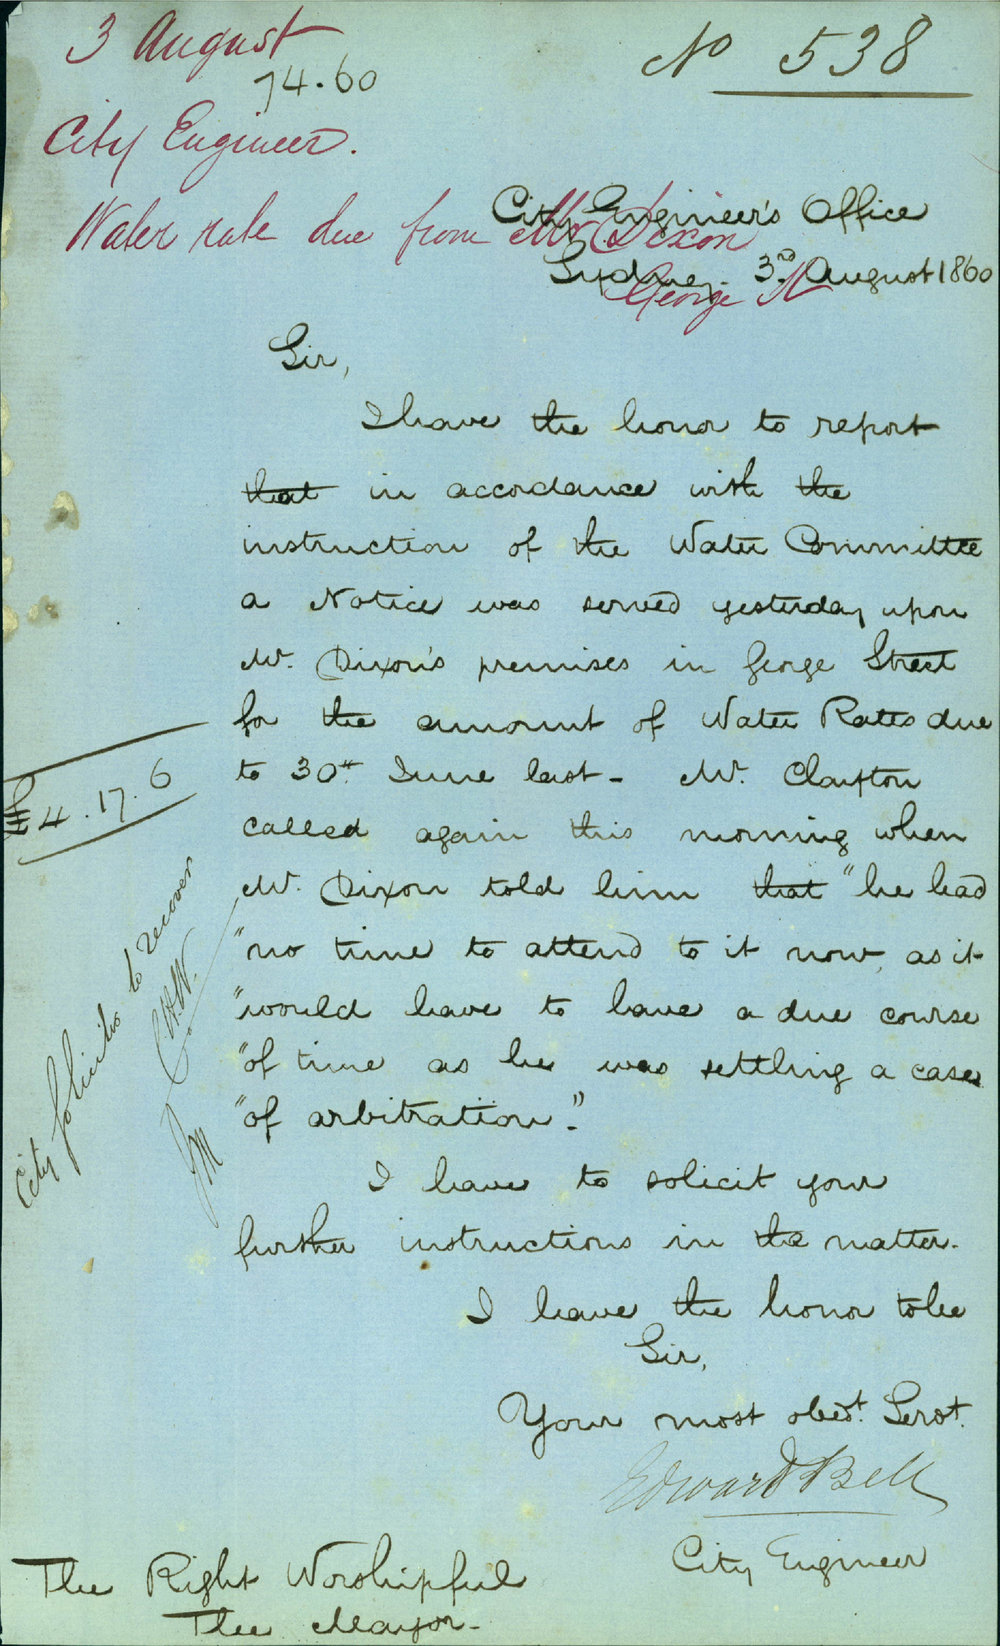 3 August
74.60
No 538
City Engineer.
Water rate due from Mr Dixon
George St
City Engineer's Office
Sydney. 3rd August 1860
Sir,
I have the honor to report
that in accordance with the
instruction of the Water Committee
a Notice was served yesterday upon
Mr. Dixon's premises in George Street
for the amount of Water Rates due
to 30th June last - Mr. Clayton
called again this morning when
Mr. Dixon told him that "he had
"no time to attend to it now, as it
"would have to have a due course
"of time as he was settling a case
"of arbitration".
£4.17.6
City Solicitor to recover
JM
I have to solicit your
further instructions in the matter.
I have the honor to be
Sir,
Your most obedt. Servt.
Edward Bell
City Engineer
The Right Worshipful
The Mayor.